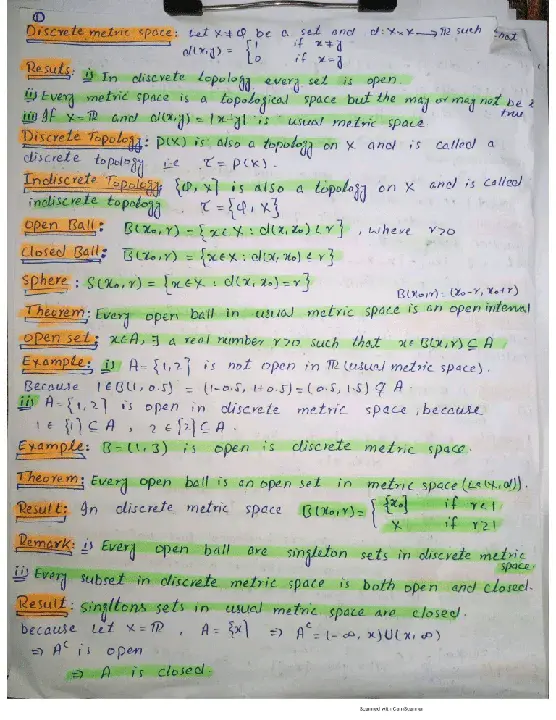 ①
Discrete metric space: Let X≠φ be a set and d: X×X → ℝ such that
d(x,y) = { 1 if x≠y
0 if x=y
Resuts: i) In discrete topology every set is open.
ii) Every metric space is a topological space but the may or may not be true
iii) If X=ℝ and d(x,y) = |x-y| is usual metric space
Discrete Topology: P(X) is also a topology on X and is called a
discrete topology i.e τ = P(X).
Indiscrete Topology {φ, X} is also a topology on X and is called
indiscrete topology. τ = {φ, X}
Open Ball: B(x₀,r) = {x∈X : d(x,x₀) < r} , where r>0
Closed Ball: B(x₀,r) = {x∈X : d(x,x₀) ≤ r}
Sphere: S(x₀,r) = {x∈X : d(x,x₀) = r}
B(x₀,r) = (x₀-r, x₀+r)
Theorem: Every open ball in usual metric space is an open interval
Open set: x∈A, ∃ a real number r>0 such that x∈B(x,r) ⊆ A
Example: i) A={1,2} is not open in ℝ (usual metric space).
Because 1∈B(1,0.5) = (1-0.5, 1+0.5) = (0.5, 1.5) ⊈ A
ii) A={1,2} is open in discrete metric space, because
1∈{1}⊆A , 2∈{2}⊆A.
Example: B=(1,3) is open is discrete metric space.
Theorem: Every open ball is an open set in metric space (Let(X,d)).
Result: In discrete metric space B(x₀,r) = { {x₀} if r≤1
X if r>1
Remark: i) Every open ball are singleton sets in discrete metric space
ii) Every subset in discrete metric space is both open and closed.
Result: singltons sets in usual metric space are closed.
because Let X=ℝ , A={x} ⇒ Aᶜ = (-∞, x)∪(x, ∞)
⇒ Aᶜ is open
⇒ A is closed.
Scanned with CamScanner